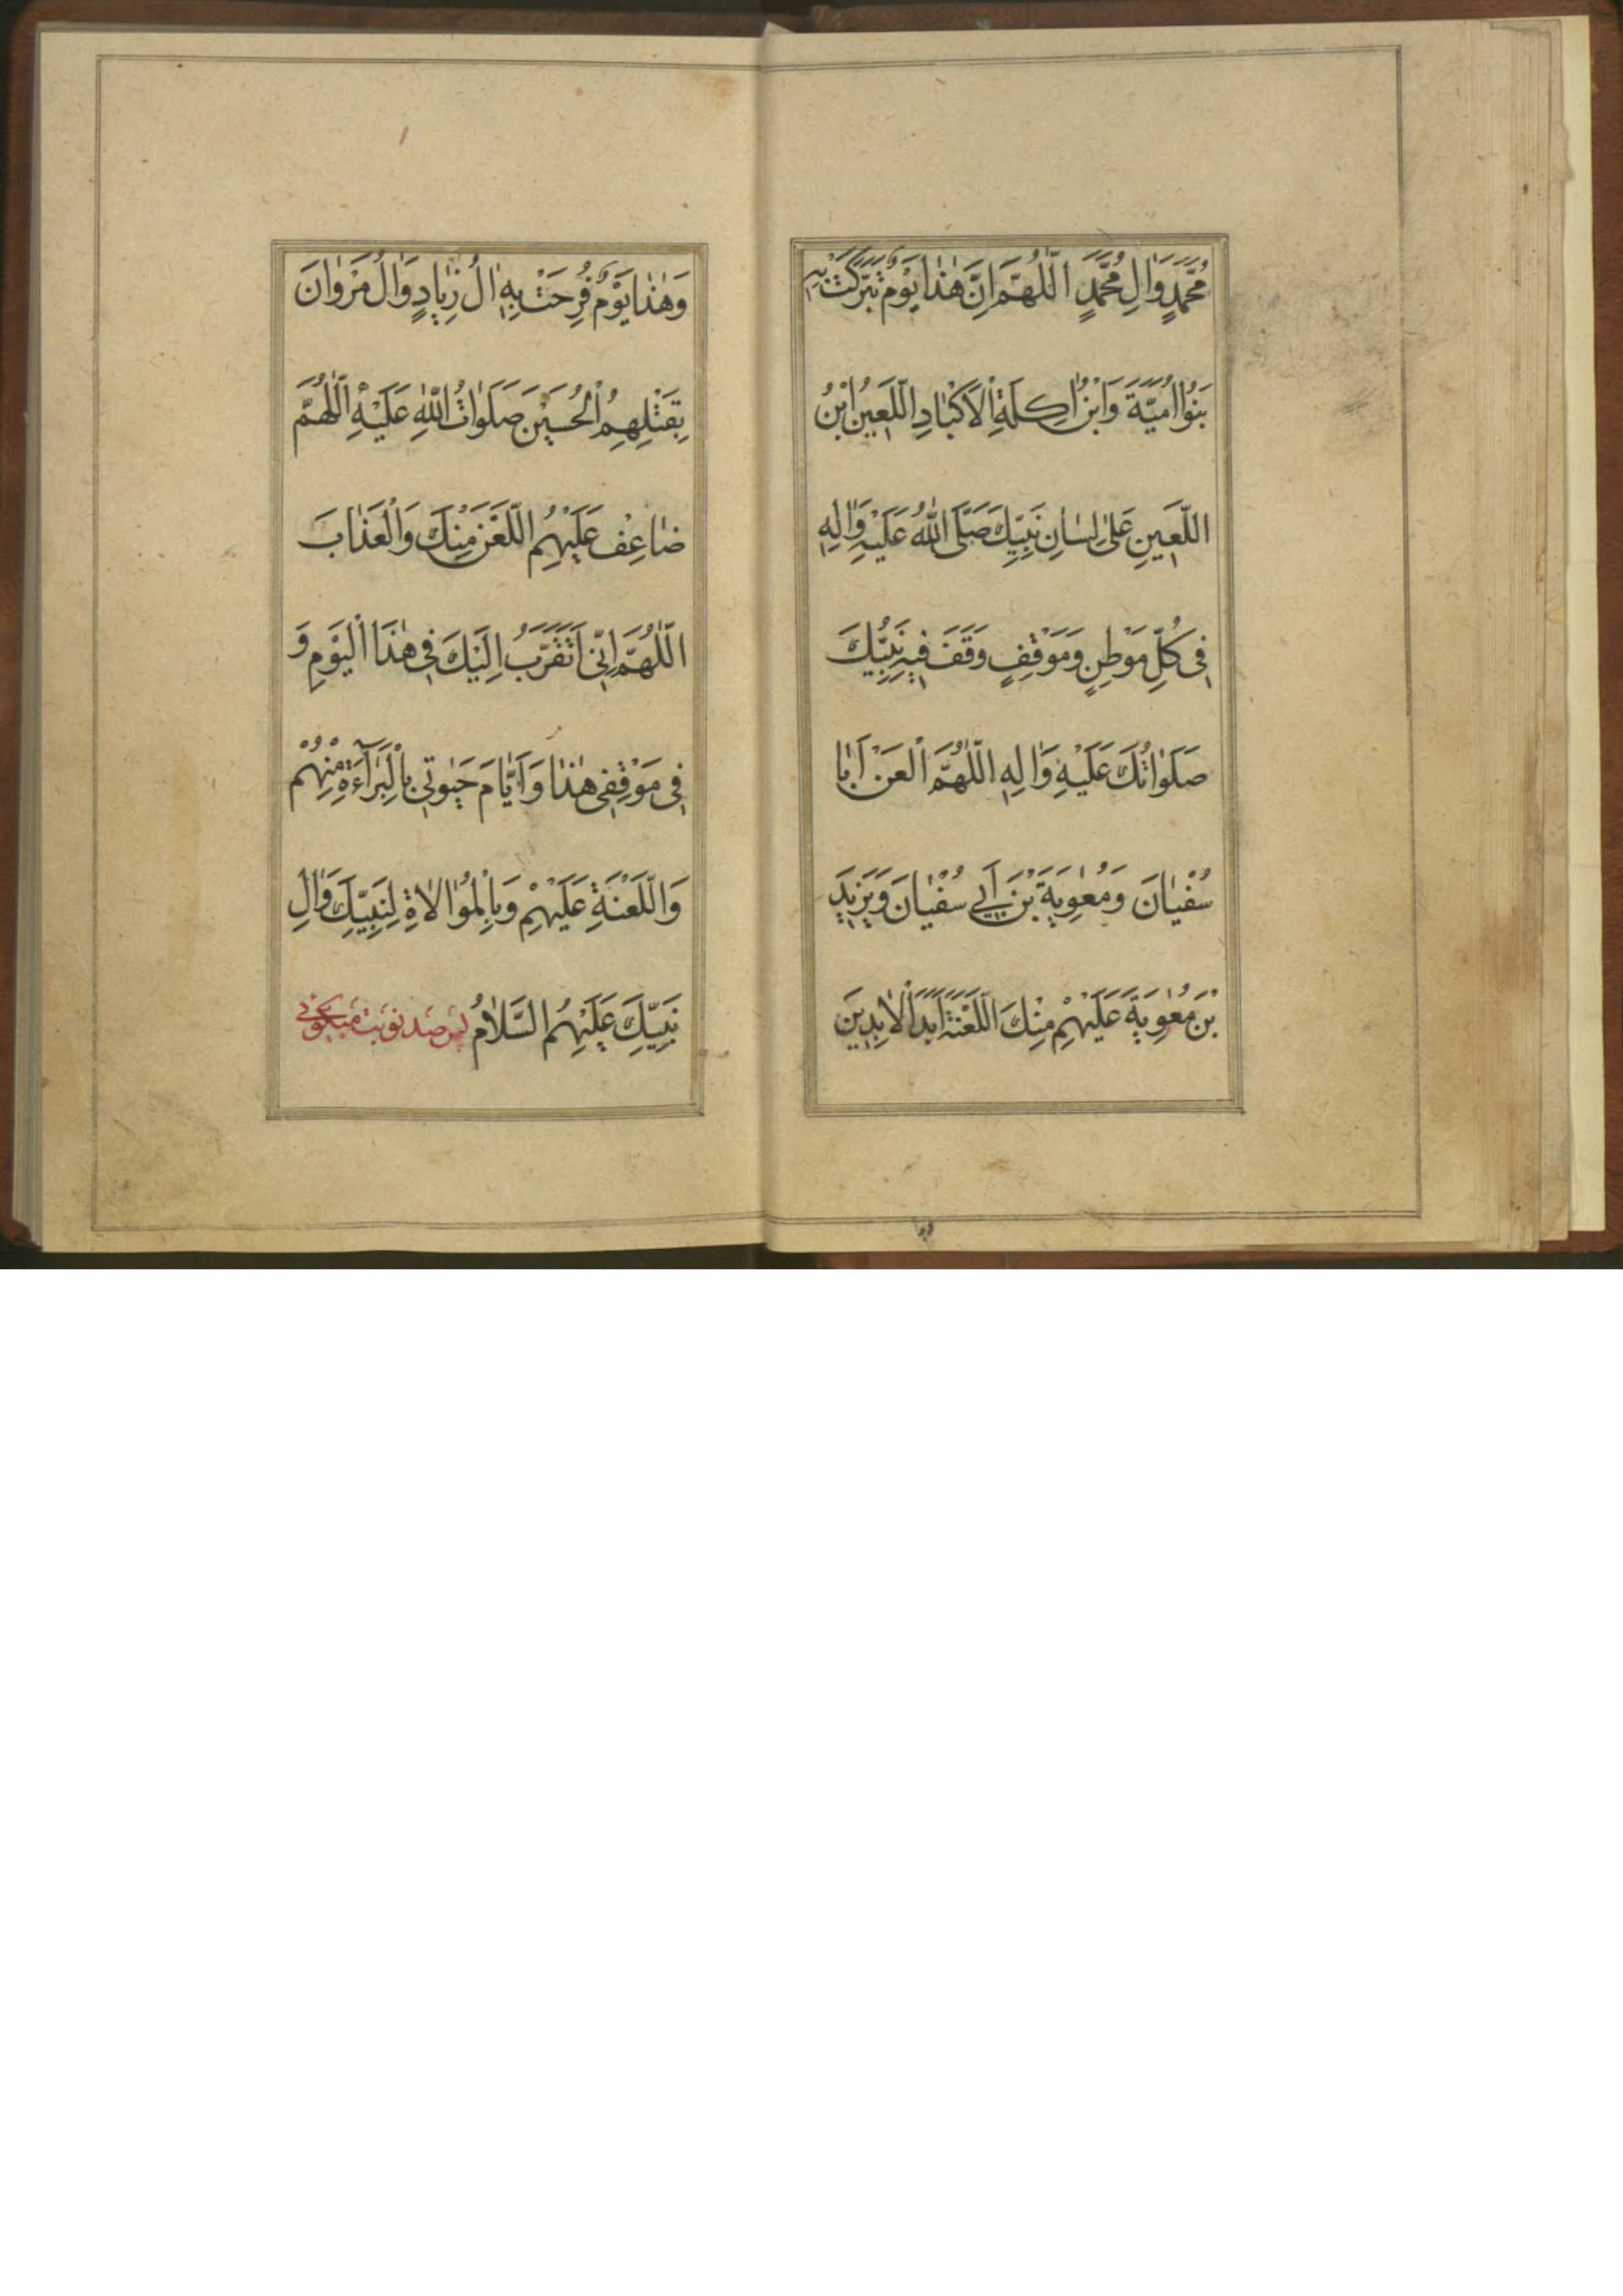 مُحَمَّدٍ وَاٰلِ مُحَمَّدٍ اَللّٰهُمَّ اِنَّ هٰذٰا يَوْمٌ تَبَرَّكَتْ بِهِ
بَنُوا اُمَيَّةَ وَابْنُ اٰكِلَةِ الْاَكْبٰادِ اللَّعِينُ ابْنُ
اللَّعِينِ عَلىٰ لِسٰانِ نَبِيِّكَ صَلَّى اللّٰهُ عَلَيْهِ وَاٰلِهِ
فِى كُلِّ مَوْطِنٍ وَمَوْقِفٍ وَقَفَ فِيهِ نَبِيُّكَ
صَلَوٰاتُكَ عَلَيْهِ وَاٰلِهِ اَللّٰهُمَّ الْعَنْ اَبٰا
سُفْيٰانَ وَمُعٰوِيَةَ بْنَ اَبِي سُفْيٰانَ وَيَزِيدَ
بْنَ مُعٰوِيَةَ عَلَيْهِمْ مِنْكَ اللَّعْنَةُ اَبَدَ الْاٰبِدِينَ
وَهٰذٰا يَوْمٌ فَرِحَتْ بِهِ اٰلُ زِيٰادٍ وَاٰلُ مَرْوٰانَ
بِقَتْلِهِمُ الْحُسَيْنَ صَلَوٰاتُ اللّٰهِ عَلَيْهِ اَللّٰهُمَّ
ضٰاعِفْ عَلَيْهِمُ اللَّعْنَ مِنْكَ وَالْعَذٰابَ
اَللّٰهُمَّ اِنِّى اَتَقَرَّبُ اِلَيْكَ فِى هٰذَا الْيَوْمِ وَ
فِى مَوْقِفِى هٰذٰا وَاَيّٰامَ حَيٰوتِى بِالْبَرٰآءَةِ مِنْهُمْ
وَاللَّعْنَةِ عَلَيْهِمْ وَبِالْمُوٰالاٰةِ لِنَبِيِّكَ وَاٰلِ
نَبِيِّكَ عَلَيْهِمُ السَّلاٰمُ پس صد نوبت ميكوئى